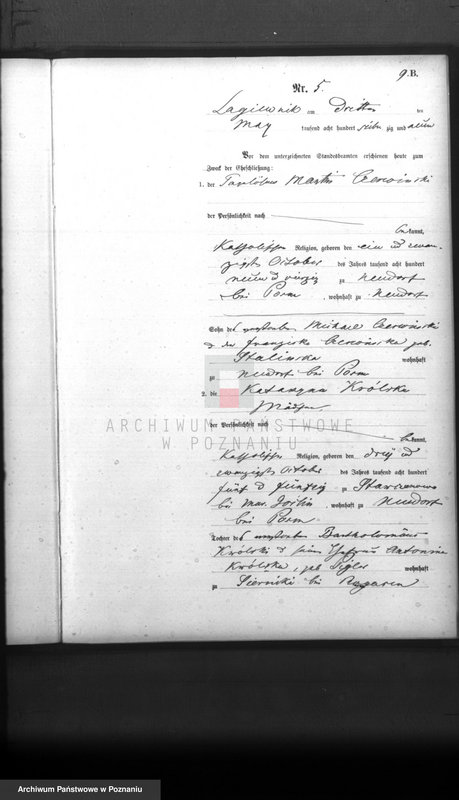 9.B.
Nr. 5.
Lagiewnik am dritten des
May tausend acht hundert sieben zig und neun
Vor dem unterzeichneten Standesbeamten erschienen heute zum
Zweck der Eheschließung:
1. der Martin Czerwinski
der Persönlichkeit nach
bekannt,
katholischer Religion, geboren den ein und zwan-
zigsten October des Jahres tausend acht hundert
neun und vierzig zu Neudorf
bei , wohnhaft zu Neudorf
Sohn des Michael Czerwinski
Franziska Czerwinska geb.
wohnhaft
zu Neudorf bei
2. die Katarzyna Królska
der Persönlichkeit nach
bekannt,
katholischer Religion, geboren den drei und
zwanzigsten October des Jahres tausend acht hundert
fünf und fünfzig zu
bei Mur. Goslin, wohnhaft zu Neudorf
bei
Tochter des Bartholomäus
Królski Antonina
Królska, geb. wohnhaft
zu bei
ARCHIWUM PAŃSTWOWE
W POZNANIU
Archiwum Państwowe w Poznaniu